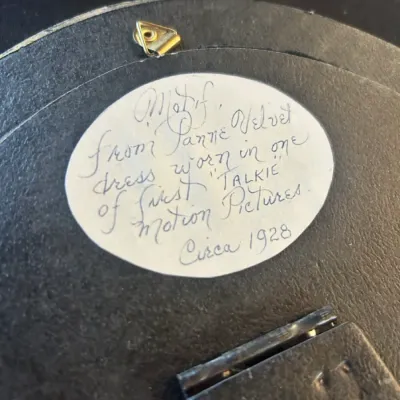 "Motif"
from Panne Velvet
dress worn in one
of first "TALKIE"
Motion Pictures.
Circa 1928